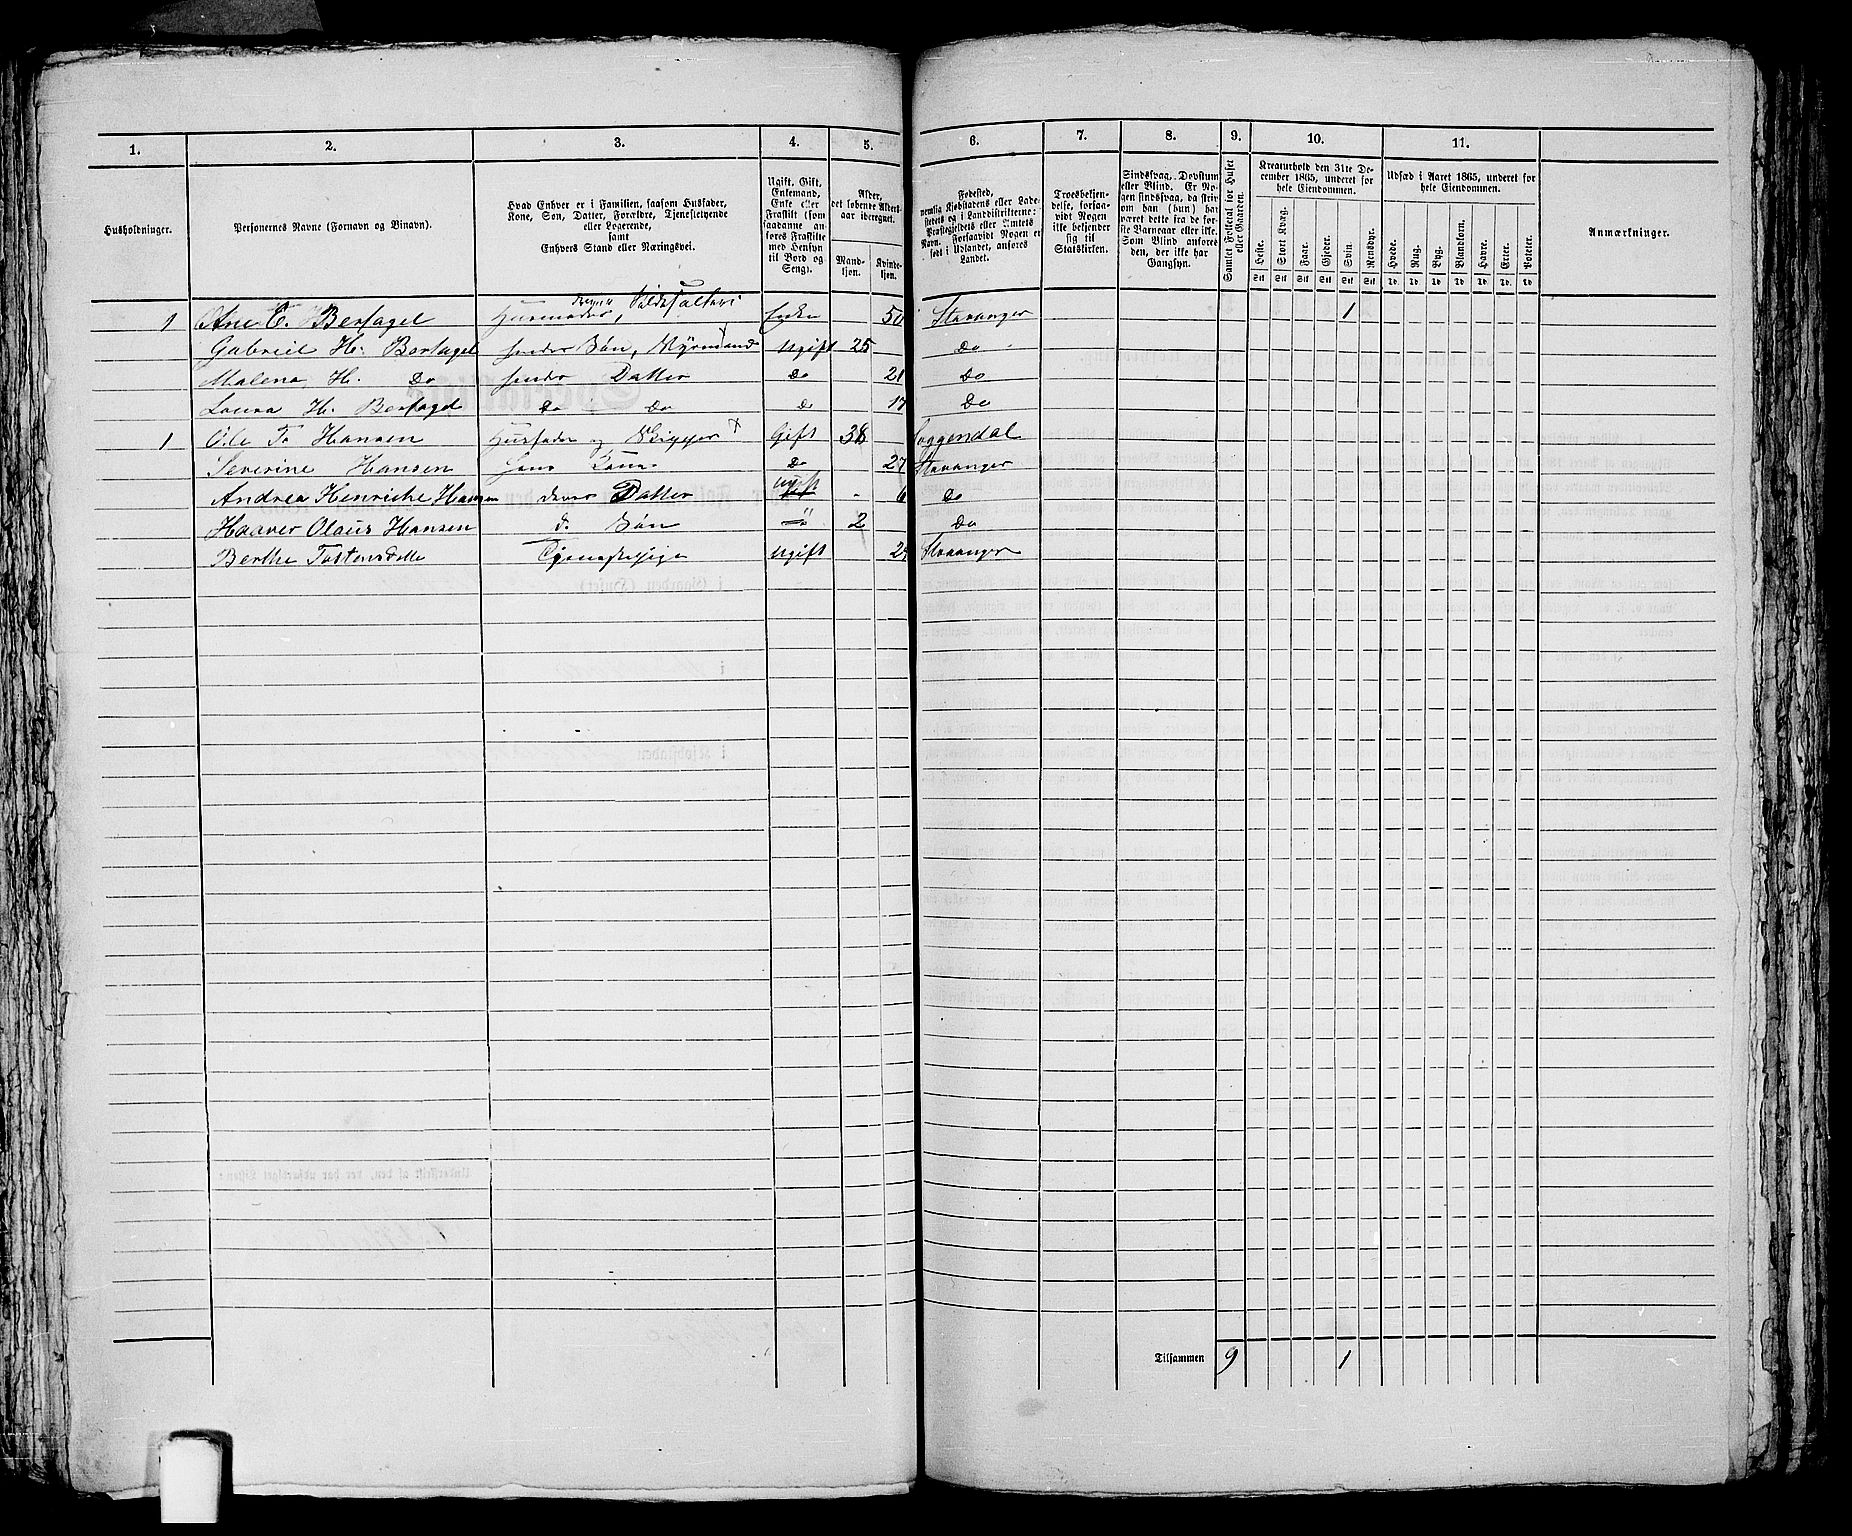 1. 2. 3. 4. 5. 6. 7. 8. 9. 10. 11.
Husholdninger.
Personernes Navne (Fornavn og Binavn).
Hvad Enhver er i Familien, saasom Husfader,
Kone, Søn, Datter, Forældre, Tjenestetyende
eller Logerende,
samt
Enhvers Stand eller Næringsvei.
Ugift, Gift,
Enkemand,
Enke eller
Fraskilt (som
saadanne an-
føres Fraskilte
med Hensyn
til Bord og
Seng).
Alder,
det løbende Alders-
aar iberegnet.
Mand-
kjøn.
Kvinde-
kjøn.
Fødested,
nemlig Kjøbstadens eller Lade-
stedets og i Landdistrikterne:
Præstegjeldets eller Amtets
Navn. Forsaavidt Nogen er
født i Udlandet, anføres
Landet.
Troesbekjen-
delse, forsaa-
vidt Nogen
ikke bekjender
sig til
Statskirken.
Sindssvag, Døvstum
eller Blind. Er No-
gen sindssvag, da skriv
om han (hun) har
været dette fra de før-
ste Barneaar eller ikke.
Som Blind anføres
den, der ikke har
Gangsyn.
Samlet Folketal for Huset
eller Gaarden.
Kreaturhold den 31te De-
cember 1865, underet for
hele Eiendommen.
Heste. Stort Kvæg. Faar. Gjeder. Svin. Rensdyr.
Stk Stk Stk Stk Stk Stk
Udsæd i Aaret 1865, underet for
hele Eiendommen.
Hvede. Rug. Byg. Blandkorn. Havre. Erter. Poteter.
Td. Td. Td. Td. Td. Td. Td.
Anmærkninger.
1 Ane C. Bertagel Husmoder, Enke 50 Stavanger 1
Gabriel H. Bertagel hendes Søn, Styrmand Ugift 25 Do
Malena H. Do hendes Datter Do 21 Do
Laura H. Bertagel Do Do Do 17 Do
1 Ole T. Hansen Husfader og Skipper Gift 38 Soggendal
Severine Hansen hans Kone Do 27 Stavanger
Andrea Henricke Hansen deres Datter Ugift 6 Do
Haaver Olaus Hansen d. Søn " 2 Do
Berthe Tostensdatte Tjenestepige Ugift 24 Stavanger
Tilsammen 9 1